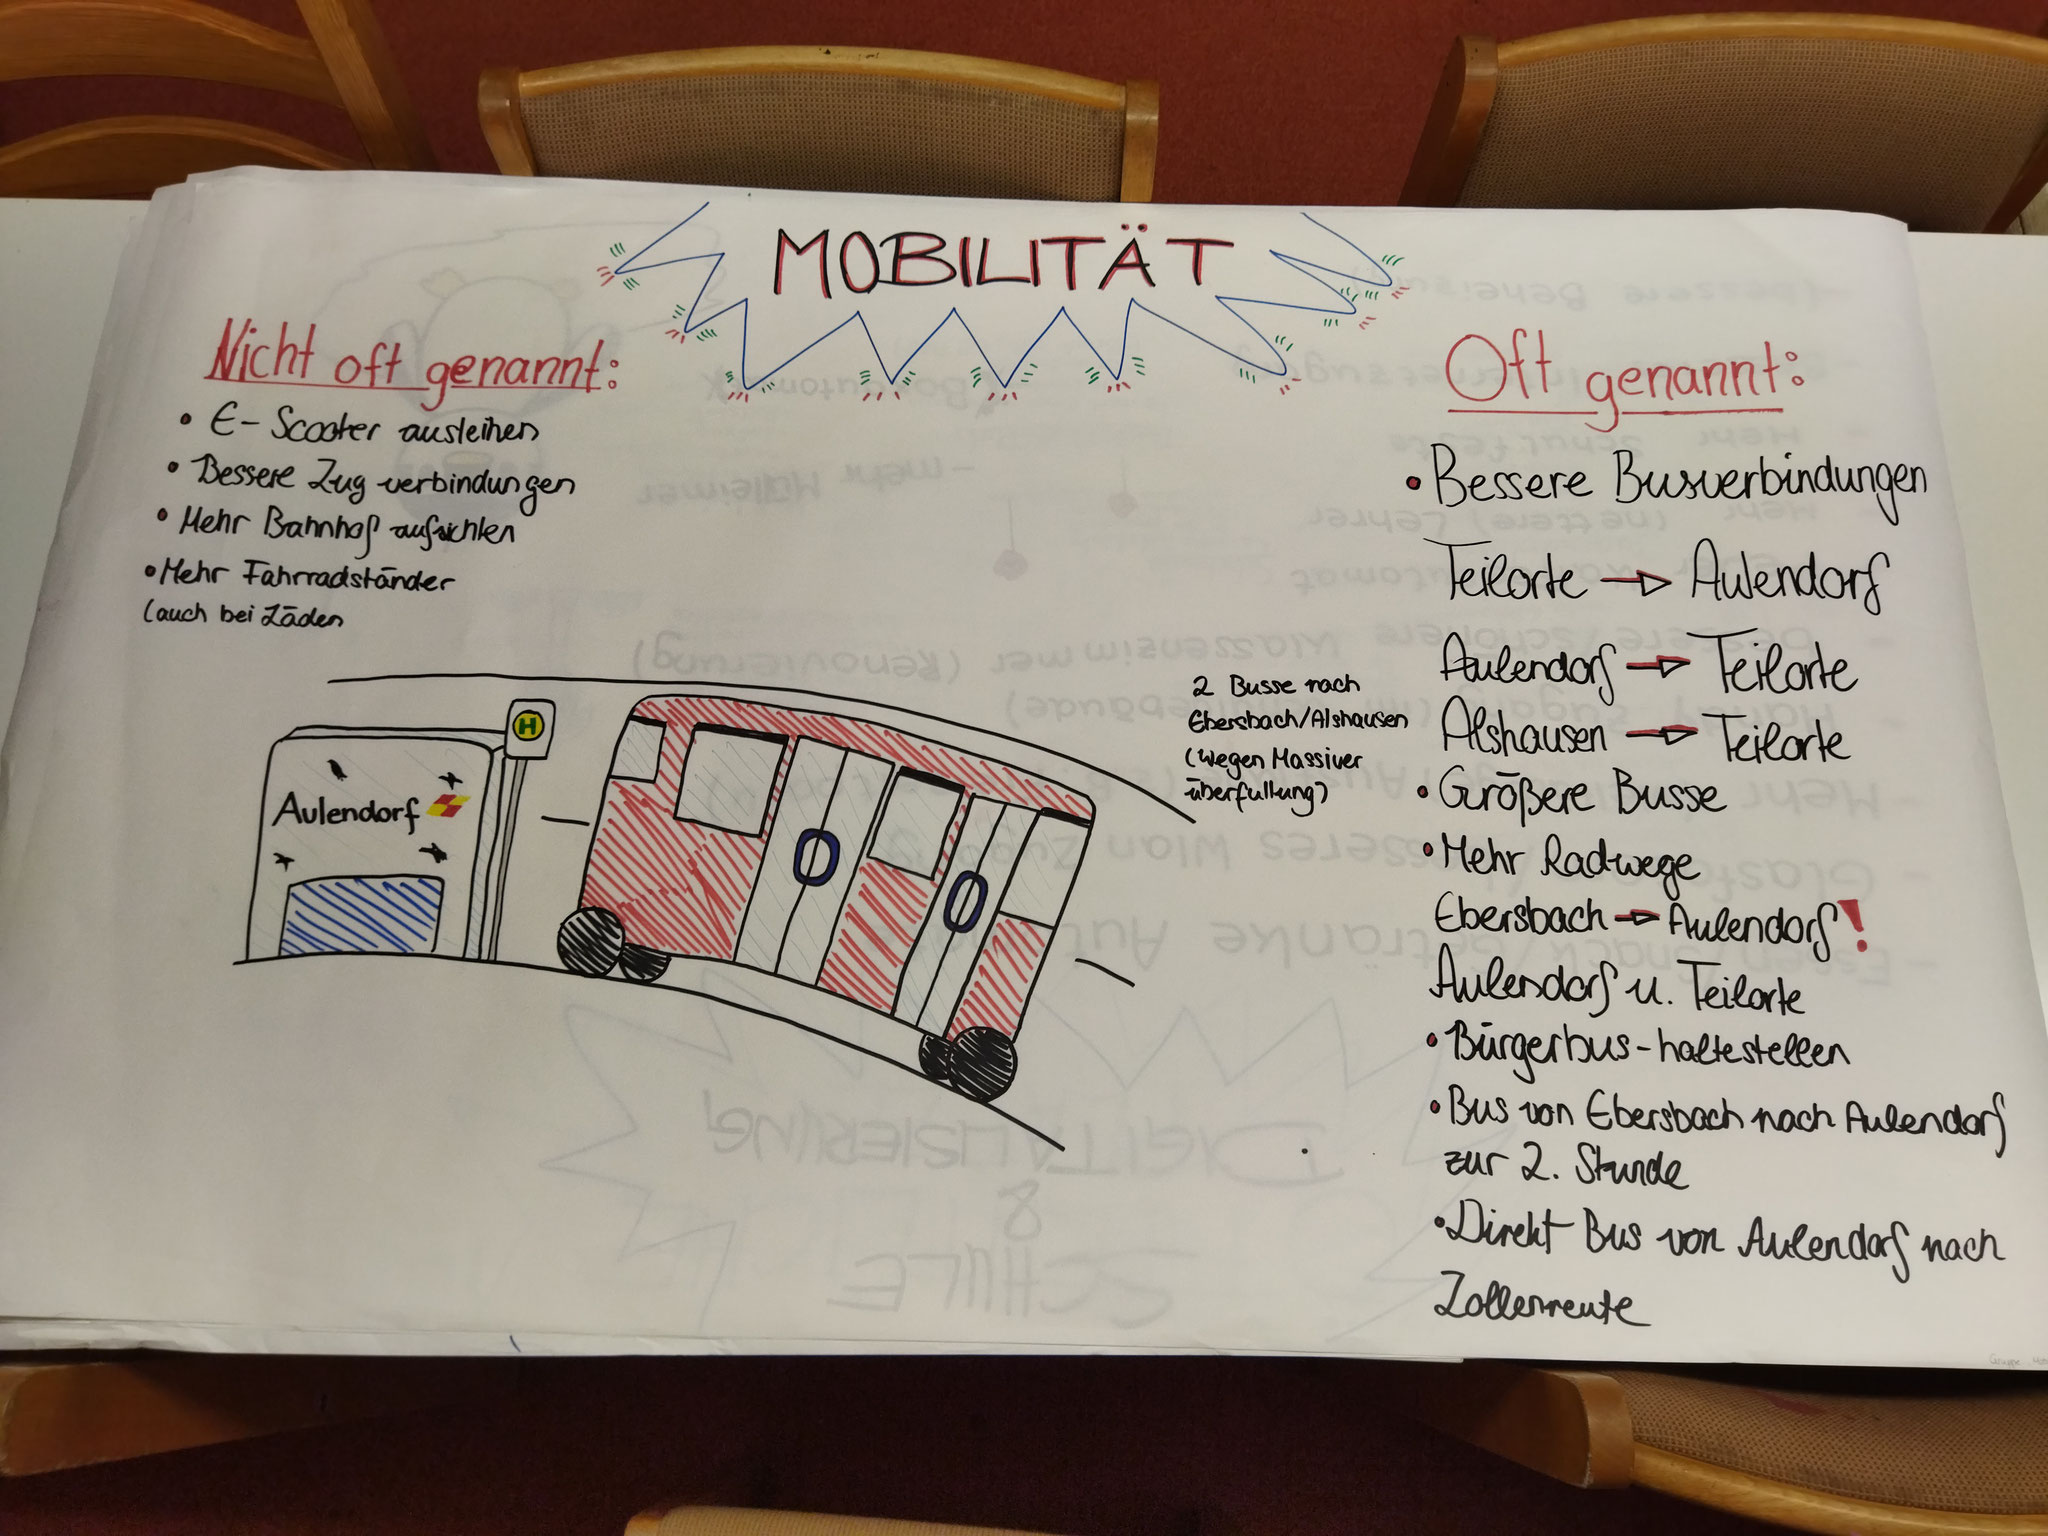 MOBILITÄT
Nicht oft genannt:
• E-Scooter ausleihen
• Bessere Zug verbindungen
• Mehr Bahnhof aufsichten
• Mehr Fahrradständer
(auch bei Läden
H
Aulendorf
2 Busse nach
Ebersbach/Alshausen
(wegen Massiver
überfüllung)
Oft genannt:
• Bessere Busverbindungen
Teilorte → Aulendorf
Aulendorf → Teilorte
Alshausen → Teilorte
• Größere Busse
• Mehr Radwege
Ebersbach → Aulendorf!
Aulendorf u. Teilorte
• Bürgerbus-haltestellen
• Bus von Ebersbach nach Aulendorf
zur 2. Stunde
• Direkt Bus von Aulendorf nach
Zollenreute
DIGITALISIERUNG
&
SCHULE